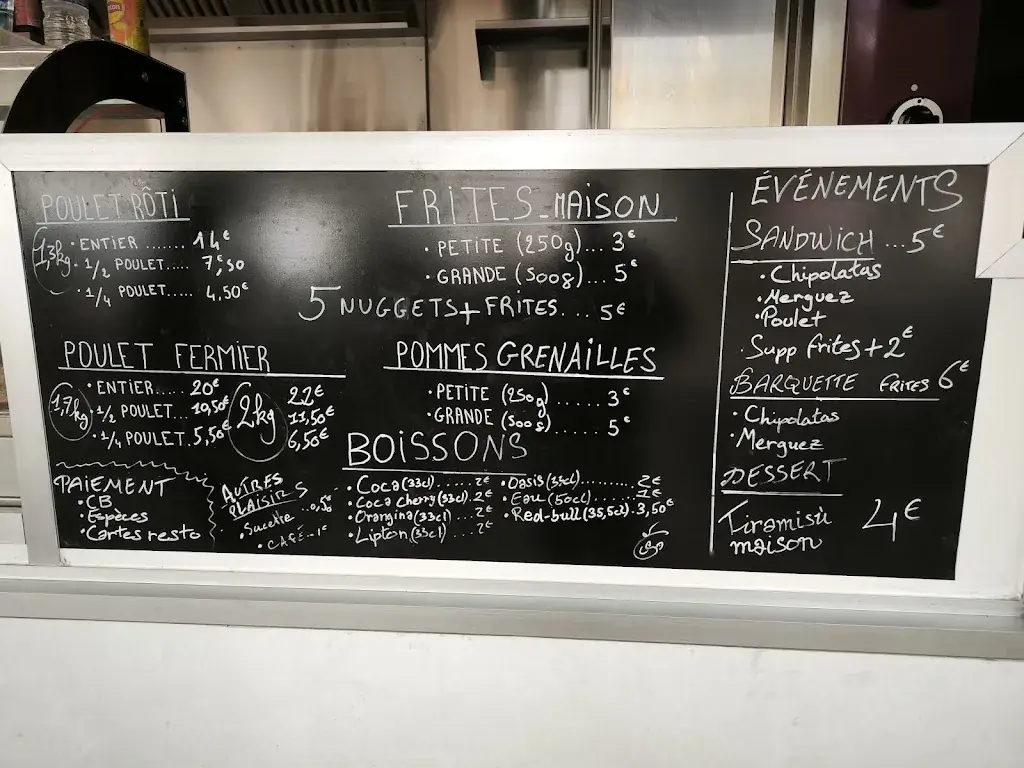 POULET RÔTI
1,3kg
• ENTIER ....... 14€
• 1/2 POULET..... 7,50
• 1/4 POULET..... 4,50€
FRITES_MAISON
• PETITE (250g)... 3€
• GRANDE (500g)... 5€
5 NUGGETS+ FRITES... 5€
POULET FERMIER
1,7kg
• ENTIER.... 20€
• 1/2 POULET... 10,50€
• 1/4 POULET. 5,50€
2kg
22€
11,50€
6,50€
POMMES GRENAILLES
• PETITE (250g)...... 3€
• GRANDE (500g)..... 5€
PAIEMENT
• CB
• Espèces
• Cartes resto
AUTRES
PLAISIRS
• Sucette ..0,50€
• CAFÉ...1€
BOISSONS
• Coca (33cl)..... 2€
• Coca Cherry (33cl). 2€
• Orangina (33cl).... 2€
• Lipton (33cl).... 2€
• Oasis (33cl)......... 2€
• Eau (50cl)....... 1€
• Red-bull (35,5cl). 3,50€
ÉVÉNEMENTS
SANDWICH ... 5€
• Chipolatas
• Merguez
• Poulet
• Supp frites + 2€
BARQUETTE FRITES 6€
• Chipolatas
• Merguez
DESSERT
Tiramisù
maison 4€